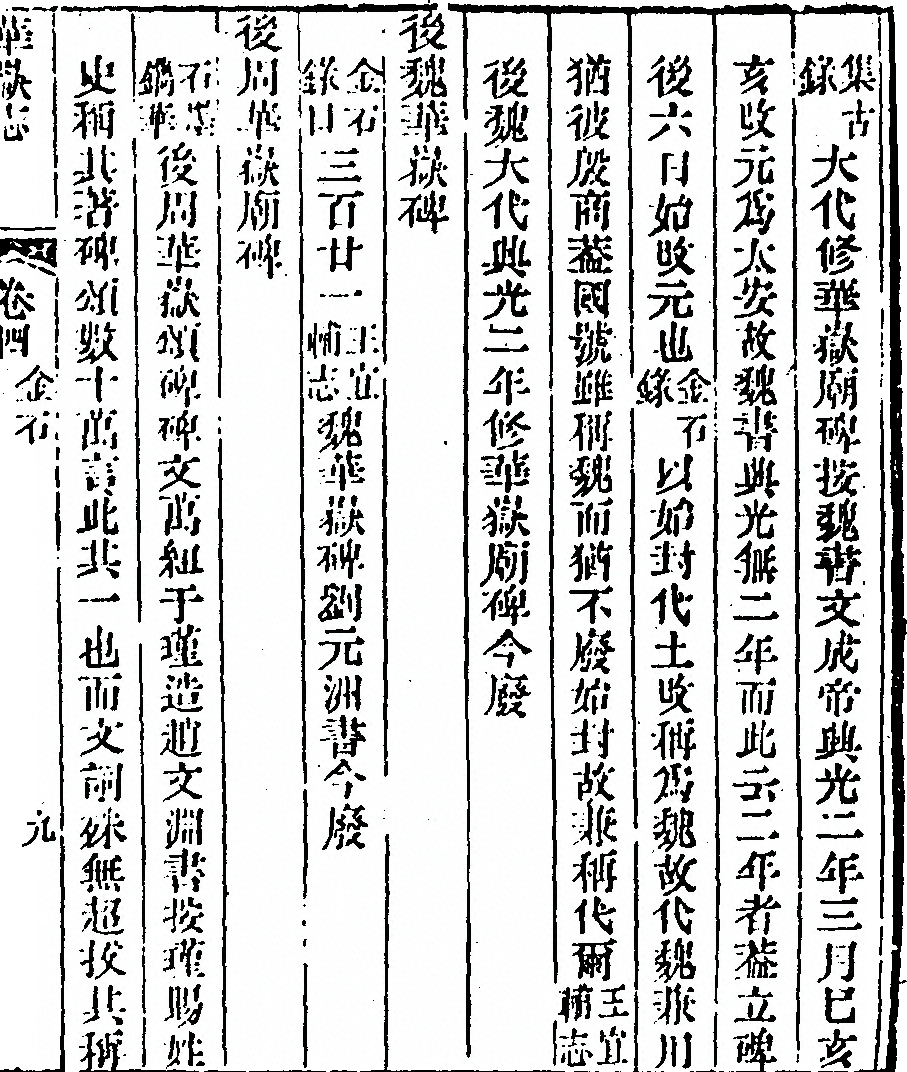 集古錄大代修華嶽廟碑按魏書文成帝興光二年三月巳亥
亥改元爲太安故魏書興光無二年而此云二年者葢立碑
後六日始改元也金石錄以始封代土改稱爲魏故代魏兼用
猶彼殷商葢國號雖稱魏而猶不廢始封故兼稱代爾王宜輔志
後魏大代興光二年修華嶽廟碑今廢
後魏華嶽碑
金石錄目三百廿一王宜輔志魏華嶽碑劉元洲書今廢
後周華嶽廟碑
石墨鐫華後周華嶽頌碑碑文萬紐于瑾造趙文淵書按瑾賜姓
史稱其著碑頌數十萬言此其一也而文詞殊無超拔其稱
華嶽志
卷四
金石
九